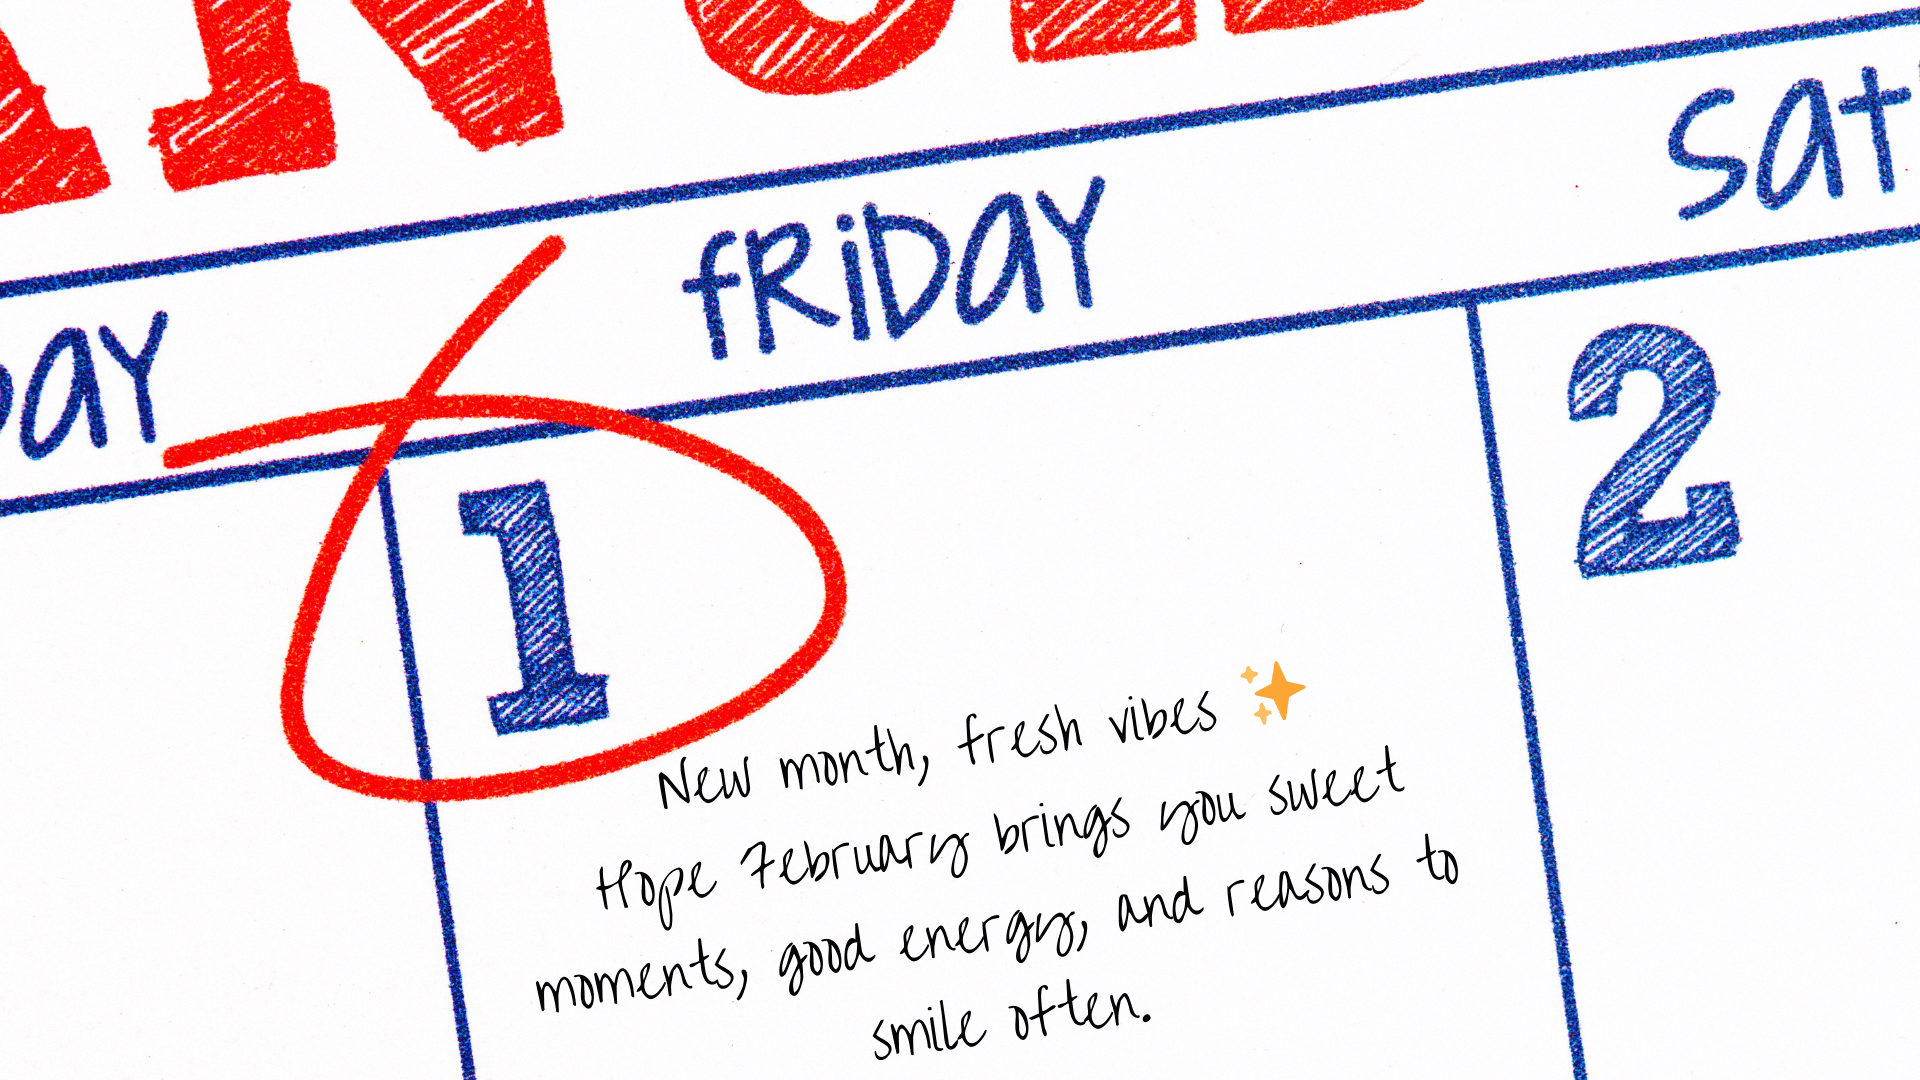 FRIDAY
1
2
New month, fresh vibes ✨
Hope February brings you sweet
moments, good energy, and reasons to
smile often.